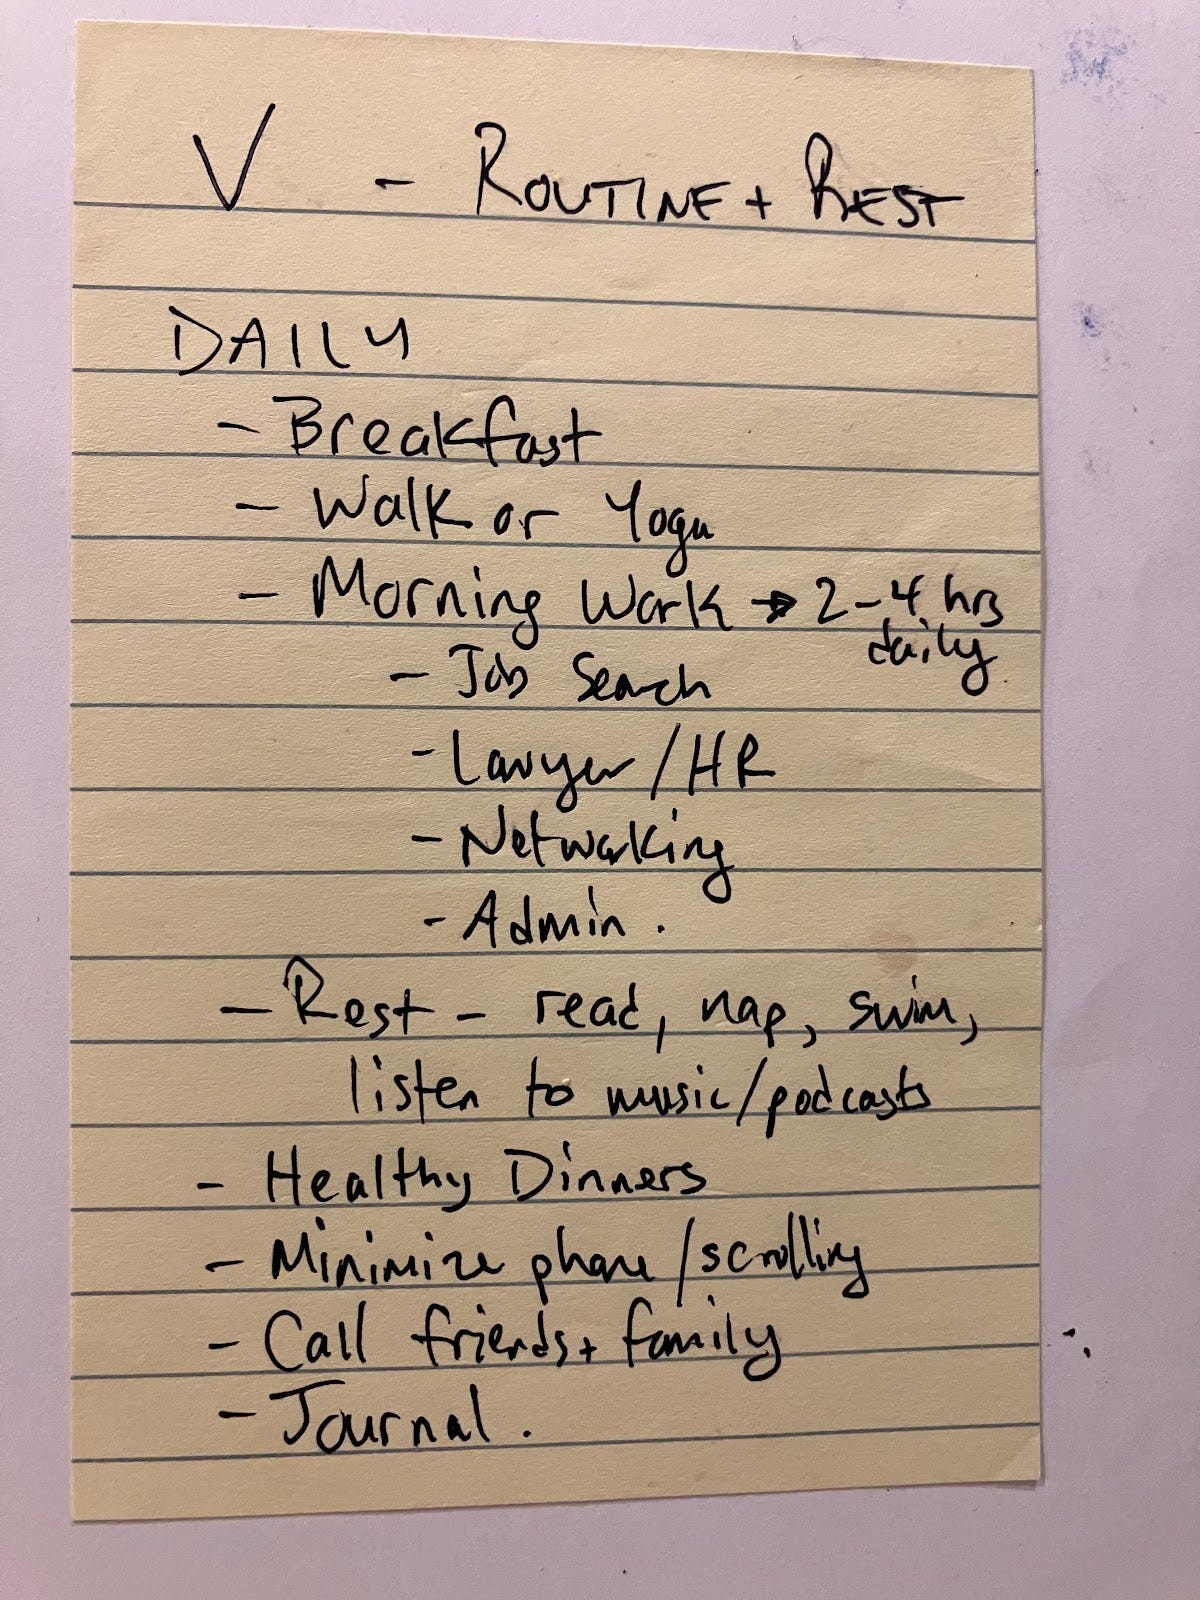 V - ROUTINE + REST
DAILY
- Breakfast
- Walk or Yoga
- Morning Work → 2-4 hrs
daily
- Job Search
- Lawyer/HR
- Networking
- Admin.
- Rest - read, nap, swim,
listen to music/podcasts
- Healthy Dinners
- Minimize phone/scrolling
- Call friends + family
- Journal.